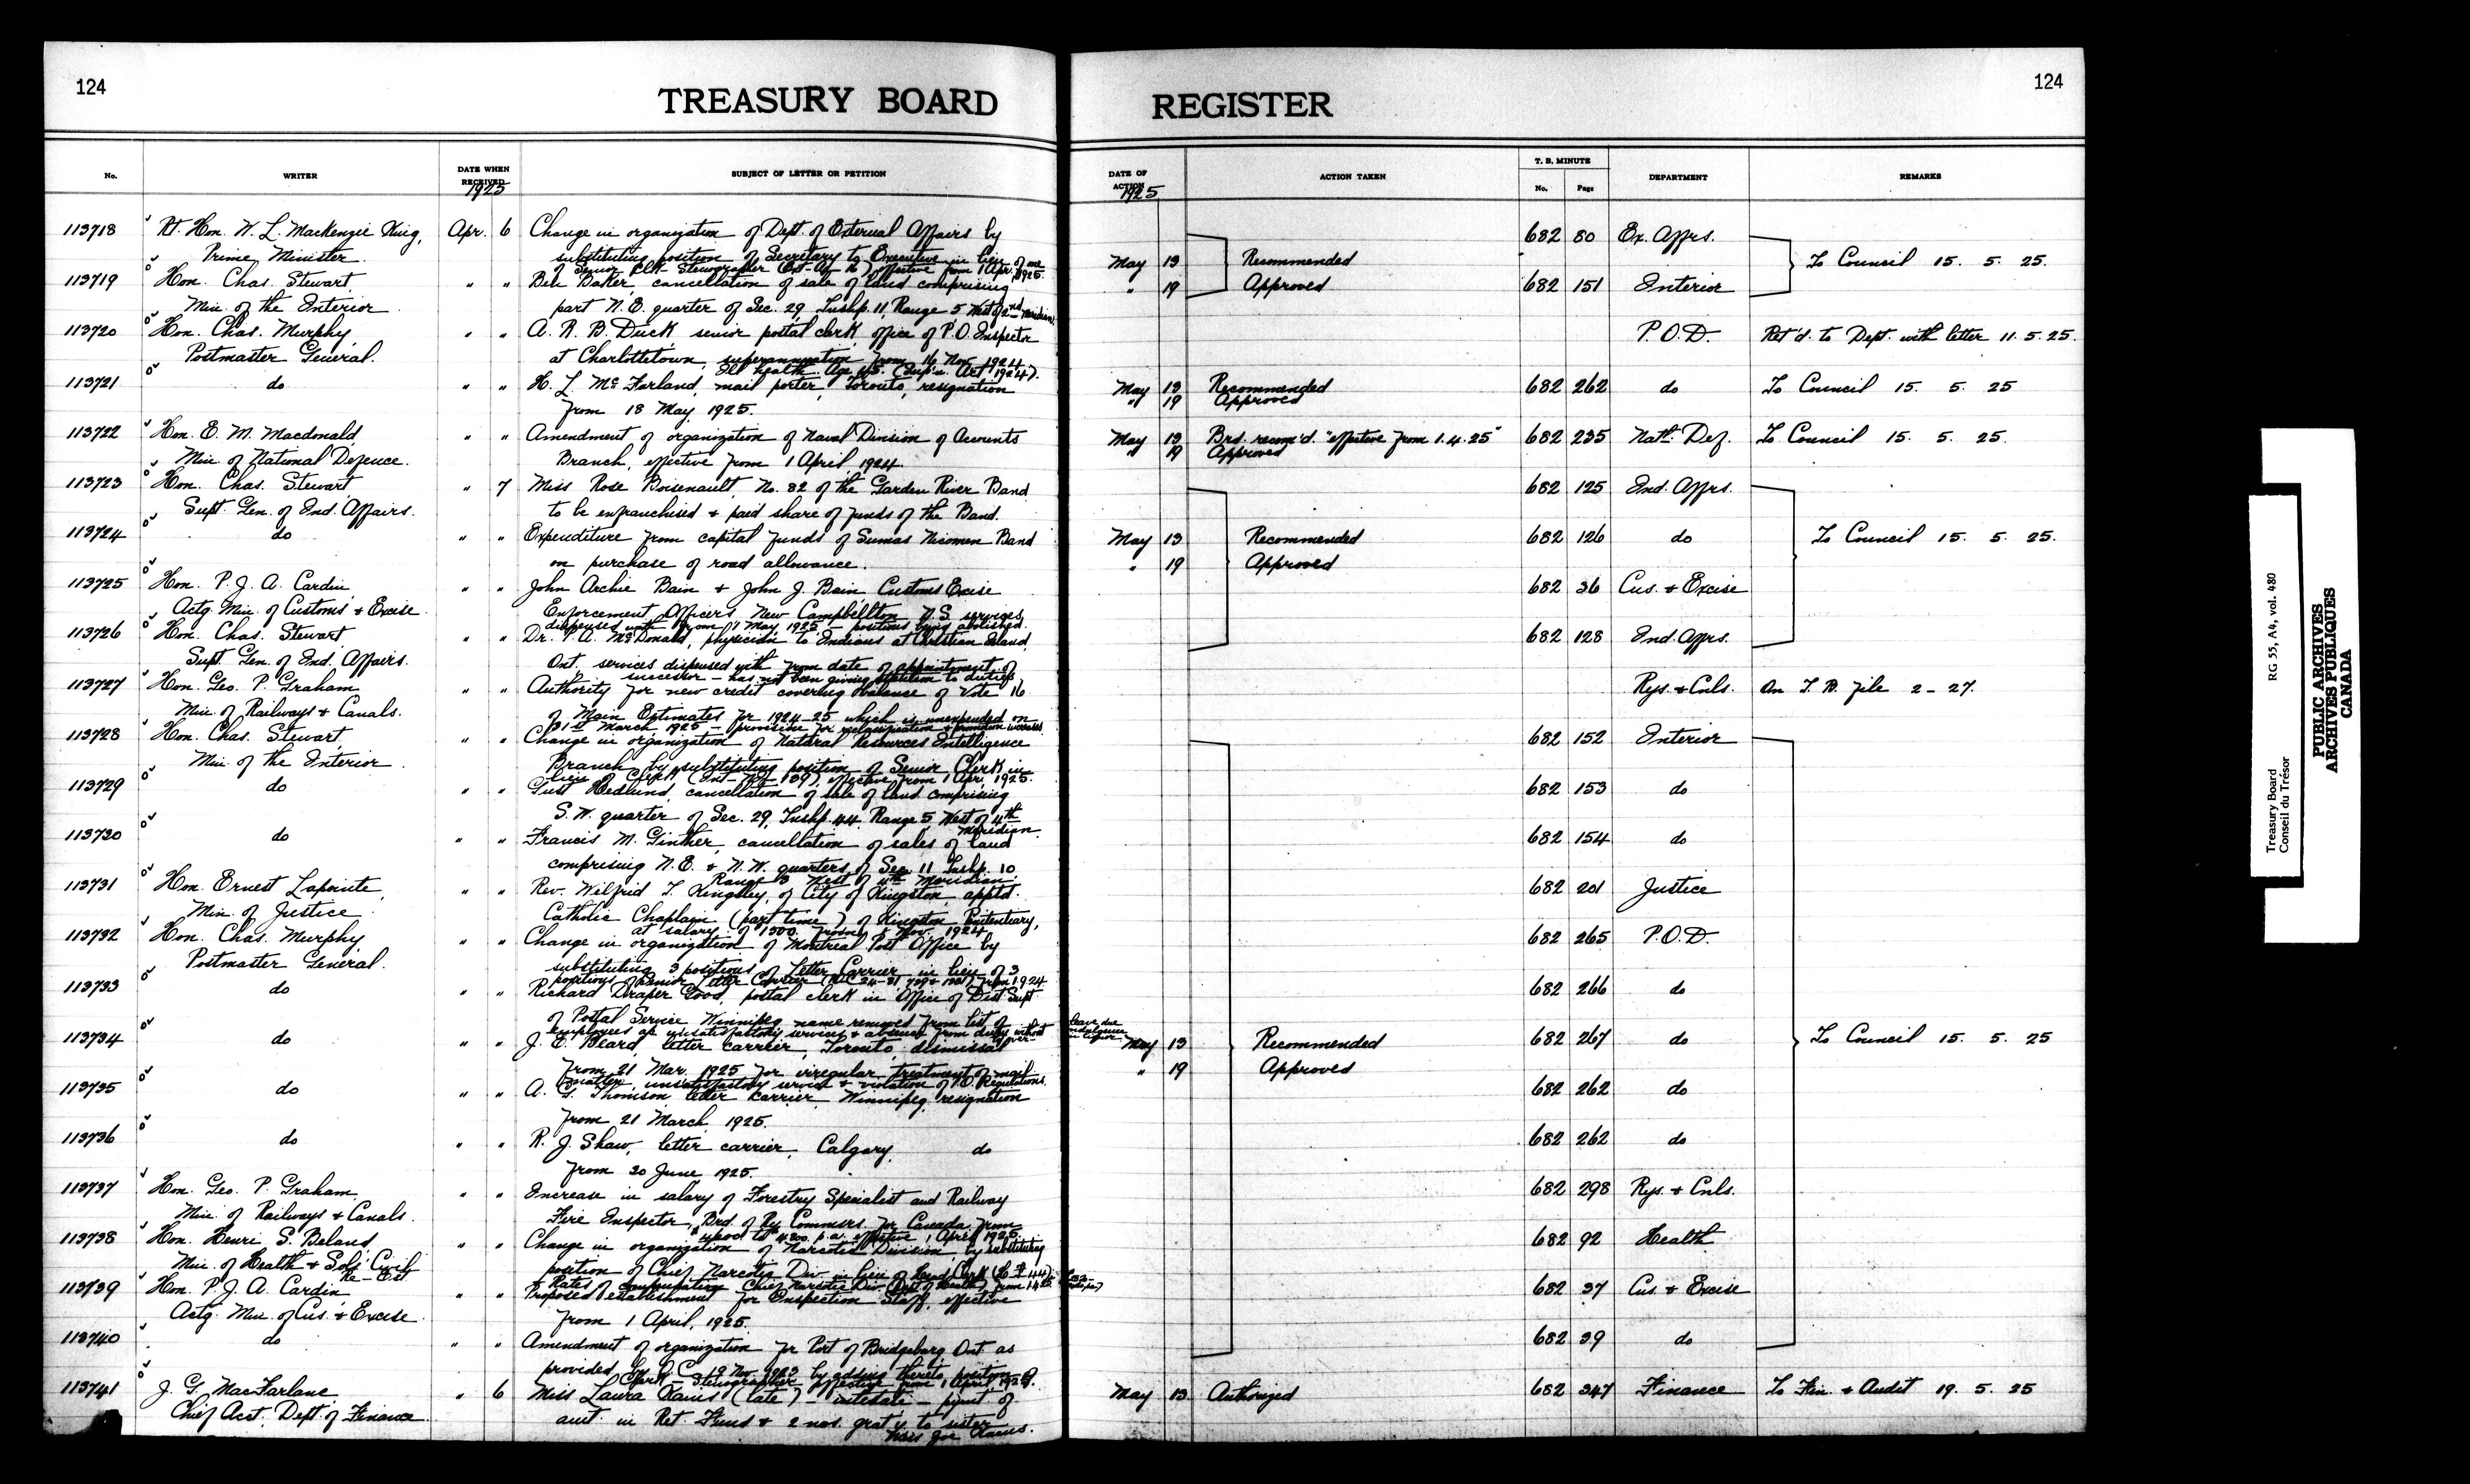 124
TREASURY BOARD
REGISTER
124
No.
WRITER
DATE WHEN RECEIVED
1925
SUBJECT OF LETTER OR PETITION
DATE OF ACTION
1925
ACTION TAKEN
T. B. MINUTE
No.
Page
DEPARTMENT
REMARKS
113718 Rt. Hon. W. L. Mackenzie King, Apr. 6 Change in organization of Dept. of External Affairs by 682 80 Ex. Affrs.
Prime Minister. substituting position of Secretary to Executive in lieu of one May 13 Recommended To Council 15. 5. 25.
of Senior Clk - Stenographer effective from 1 Apr. 1925.
113719 Hon. Chas. Stewart, " " Ben Baker, cancellation of sale of land comprising " 19 Approved 682 151 Interior
Min. of the Interior part N.E. quarter of Sec. 29, Tnshp. 11, Range 5 West of 2nd Meridian.
113720 Hon. Chas. Murphy, " " A. R. B. Duck, senior postal clerk, office of P.O. Inspector P.O.D. Ret'd. to Dept. with letter 11. 5. 25.
Postmaster General. at Charlottetown, superannuation from 16 Nov. 1924
Ill health. Age 45. (Sup'n. Act 1924).
113721 do " " H. L. McFarland, mail porter, Toronto, resignation May 13 Recommended 682 262 do To Council 15. 5. 25
from 18 May 1925. " 19 Approved
113722 Hon. E. M. Macdonald, " " Amendment of organization of Naval Division of Accounts May 13 Brd. recom'd. "effective from 1.4.25" 682 235 Natl. Def. To Council 15. 5. 25.
Min. of National Defence. Branch, effective from 1 April, 1924. " 19 Approved
113723 Hon. Chas. Stewart " 7 Miss Rose Boisenault, No. 82 of the Garden River Band 682 125 Ind. Affrs.
Supt. Gen. of Ind. Affairs. to be enfranchised & paid share of funds of the Band.
113724 do " " Expenditure from capital funds of Sumas Nicomen Band May 13 Recommended 682 126 do To Council 15. 5. 25.
on purchase of road allowance. " 19 Approved
113725 Hon. P. J. A. Cardin, " " John Archie Bain & John J. Bain, Customs Excise 682 36 Cus. & Excise
Actg. Min. of Customs & Excise. Enforcement Officers New Campbellton N.S. services
dispensed with from 1 May 1925 - positions being abolished.
113726 Hon. Chas. Stewart, " " Dr. P. A. McDonald, physician to Indians at Christian Island, 682 128 Ind. Affrs.
Supt. Gen. of Ind. Affairs. Ont. services dispensed with from date of appointment of
successor - has not been giving attention to duties.
113727 Hon. Geo. P. Graham, " " Authority for new credit covering balance of Vote 16 Rys. & Cnls. On T. B. file 2-27.
Min. of Railways & Canals. of Main Estimates for 1924-25 which is unexpended on
31st March 1925 - provision for reclassification & promotion increases.
113728 Hon. Chas. Stewart, " " Change in organization of Natural Resources Intelligence 682 152 Interior
Min. of the Interior. Branch by substituting position of Senior Clerk in
lieu of Clerk effective from 1 Apr. 1925.
113729 do " " Gust Hedlund, cancellation of sale of land comprising 682 153 do
S.W. quarter of Sec. 29, Tnshp. 44 Range 5 West of 4th
Meridian.
113730 do " " Francis M. Ginther, cancellation of sales of land 682 154 do
comprising N.E. & N.W. quarters of Sec. 11 Tnshp. 10
Range 3 West of 4th Meridian.
113731 Hon. Ernest Lapointe, " " Rev. Wilfrid T. Kingsley, of City of Kingston, apptd. 682 201 Justice
Min. of Justice. Catholic Chaplain (part time) of Kingston Penitentiary,
at salary of 1500. from Nov. 1924
113732 Hon. Chas. Murphy, " " Change in organization of Montreal Post Office by 682 265 P.O.D.
Postmaster General. substituting 3 positions of Letter Carrier in lieu of 3
positions of Senior Letter Carrier
113733 do " " Richard Draper Good, postal clerk in Office of Dist. Supt. 682 266 do
of Postal Service Winnipeg name removed from list of
employees a/c unsatisfactory services & absence from duty without leave due to over-indulgence in liquor.
113734 do " " J. E. Beard, letter carrier, Toronto, dismissal May 13 Recommended 682 267 do To Council 15. 5. 25
from 21 Mar. 1925 for irregular treatment of mail " 19 Approved
matter, unsatisfactory service & violation of P.O. Regulations.
113735 do " " A. G. Thomson letter carrier, Winnipeg, resignation 682 262 do
from 21 March 1925.
113736 do " " R. J. Shaw, letter carrier, Calgary, do 682 262 do
from 30 June 1925.
113737 Hon. Geo. P. Graham, " " Increase in salary of Forestry Specialist and Railway 682 298 Rys. & Cnls.
Min. of Railways & Canals. Fire Inspector, Brd. of Ry. Commsrs. for Canada from
to 4800. p.a. effective 1 April 1925.
113738 Hon. Henri S. Beland, " " Change in organization of Narcotic Division by substituting 682 92 Health
Min. of Health & Sols' Civil Re-Est position of Chief Narcotic Div. in lieu of Head Clerk
& Rates of compensation Chief Narcotic Div. (Dept. of Health) from
113739 Hon. P. J. A. Cardin " " Proposed establishment for Inspection Staff, effective 682 37 Cus. & Excise
Actg. Min. of Cus. & Excise. from 1 April, 1925.
113740 do " " Amendment of organization for Port of Bridgeburg Ont. as 682 39 do
provided by P.C. 19 Nov. 1923 by adding thereto position of
Clerk - Stenographer effective from 1 April 1925.
113741 J. G. MacFarlane " 6 Miss Laura (late) - intestate - pymt. of May 13 Authorized 682 347 Finance To Fin. & Audit 19. 5. 25
Chief Acct. Dept. of Finance. amt. in Ret. Fund & 2 mos. graty. to sister
Treasury Board RG 55, A4, vol. 480
Conseil du Trésor
PUBLIC ARCHIVES
ARCHIVES PUBLIQUES
CANADA